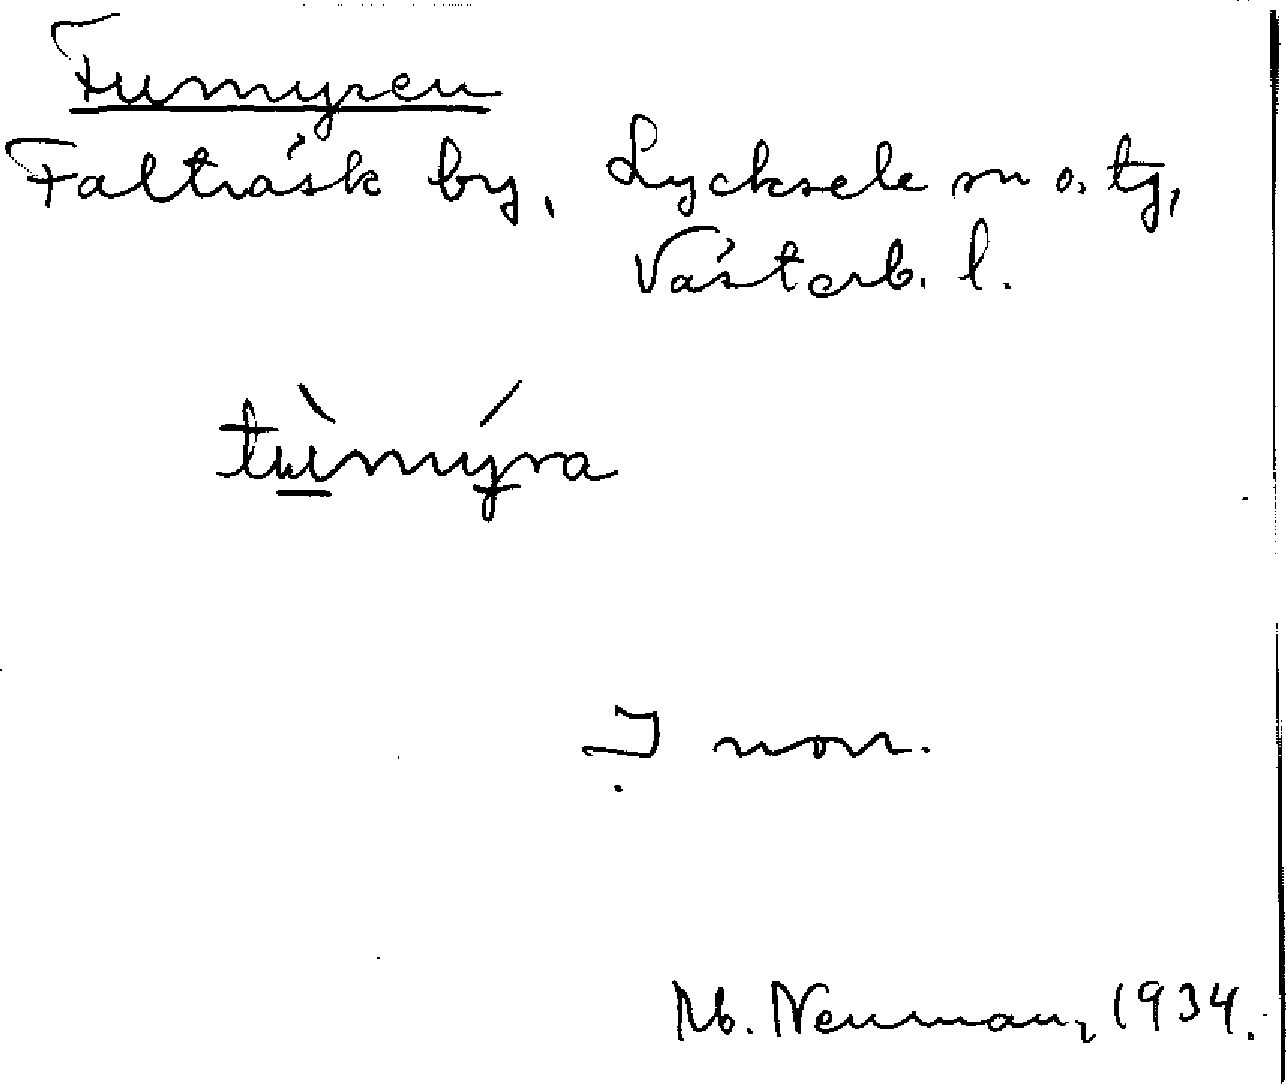 Fumyren
Falträsk by, Lycksele sn o. tg,
Västerb. l.
tùmýra
I norr.
Neuman, 1934.